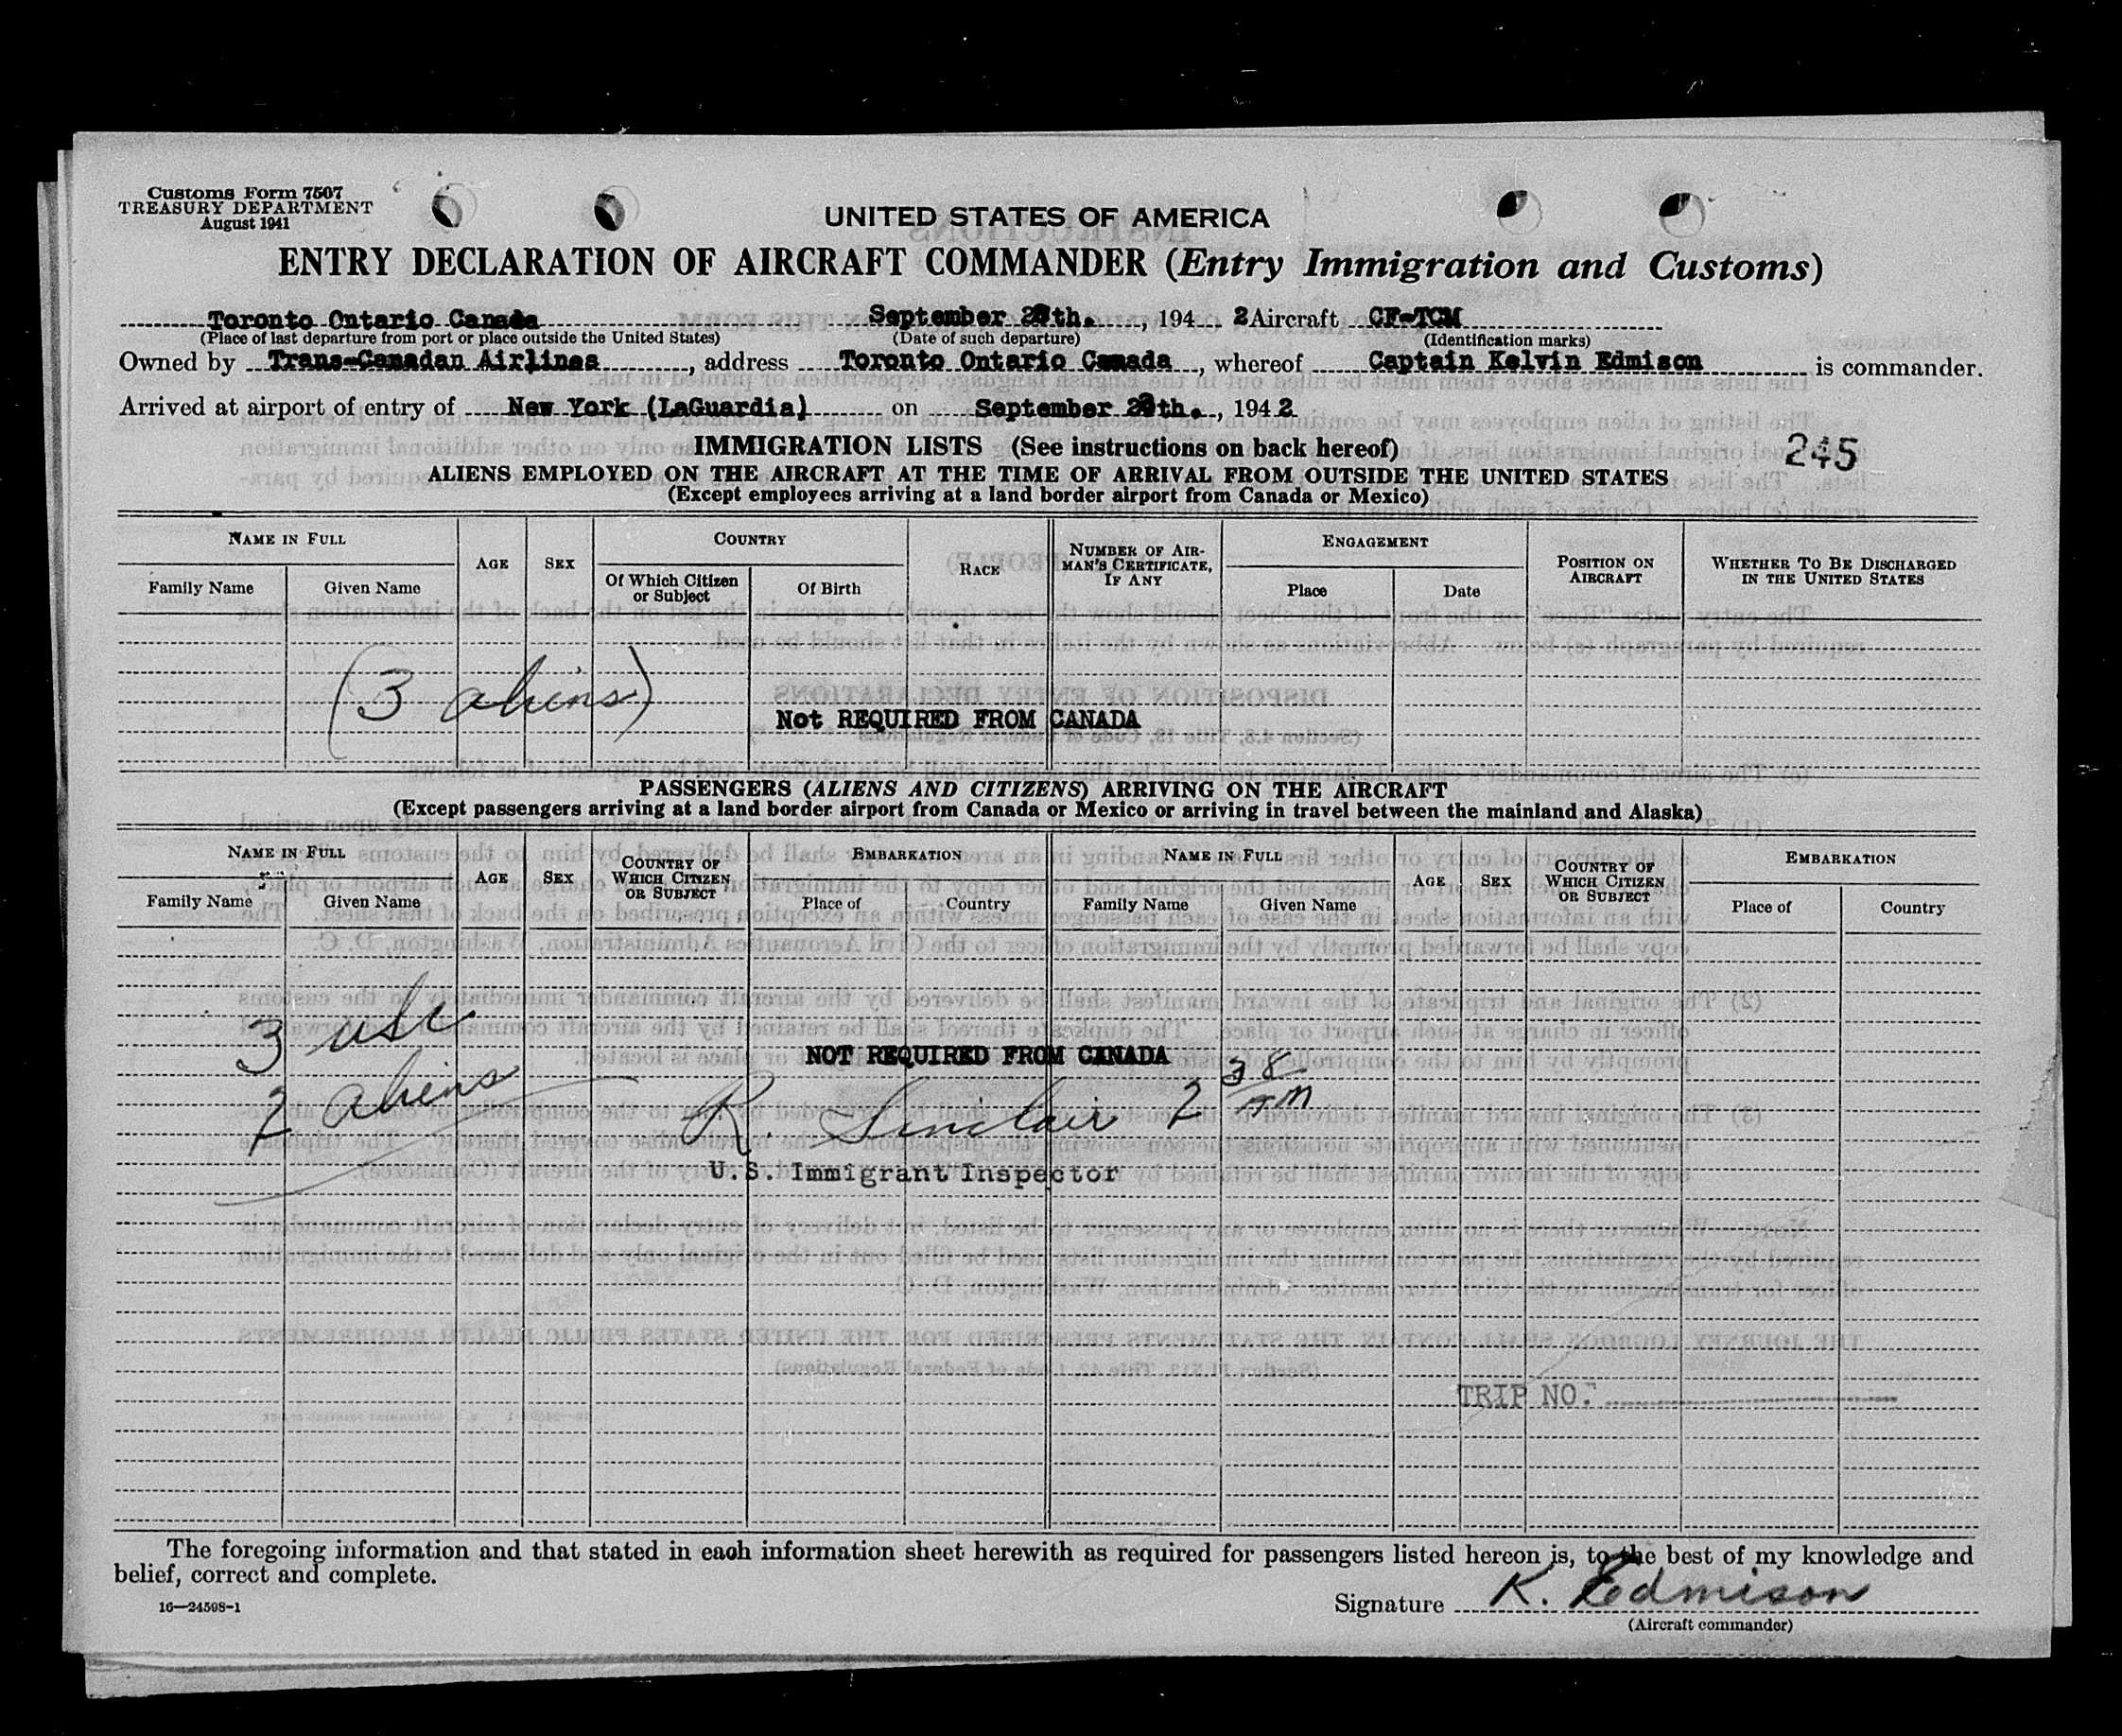 Customs Form 7507
TREASURY DEPARTMENT
August 1941
UNITED STATES OF AMERICA
ENTRY DECLARATION OF AIRCRAFT COMMANDER (Entry Immigration and Customs)
Toronto Ontario Canada September , 194 2 Aircraft CF-TCM
(Place of last departure from port or place outside the United States) (Date of such departure) (Identification marks)
Owned by Trans-Canadan Airlines, address Toronto Ontario Canada, whereof Captain Kelvin Edmison is commander.
Arrived at airport of entry of New York (LaGuardia) on September , 194 2
IMMIGRATION LISTS (See instructions on back hereof)
245
ALIENS EMPLOYED ON THE AIRCRAFT AT THE TIME OF ARRIVAL FROM OUTSIDE THE UNITED STATES
(Except employees arriving at a land border airport from Canada or Mexico)
NAME IN FULL AGE SEX COUNTRY RACE NUMBER OF AIRMAN'S CERTIFICATE, IF ANY ENGAGEMENT POSITION ON AIRCRAFT WHETHER TO BE DISCHARGED IN THE UNITED STATES
Family Name Given Name Of Which Citizen or Subject Of Birth Place Date
(3 aliens)
Not REQUIRED FROM CANADA
PASSENGERS (ALIENS AND CITIZENS) ARRIVING ON THE AIRCRAFT
(Except passengers arriving at a land border airport from Canada or Mexico or arriving in travel between the mainland and Alaska)
NAME IN FULL AGE SEX COUNTRY OF WHICH CITIZEN OR SUBJECT EMBARKATION NAME IN FULL AGE SEX COUNTRY OF WHICH CITIZEN OR SUBJECT EMBARKATION
Family Name Given Name Place of Country Family Name Given Name Place of Country
3 usc
NOT REQUIRED FROM CANADA
7 aliens
R. Sinclair 2 38
U.S. Immigrant Inspector
TRIP NO.
The foregoing information and that stated in each information sheet herewith as required for passengers listed hereon is, to the best of my knowledge and
belief, correct and complete.
Signature K. Edmison
16—24598-1
(Aircraft commander)